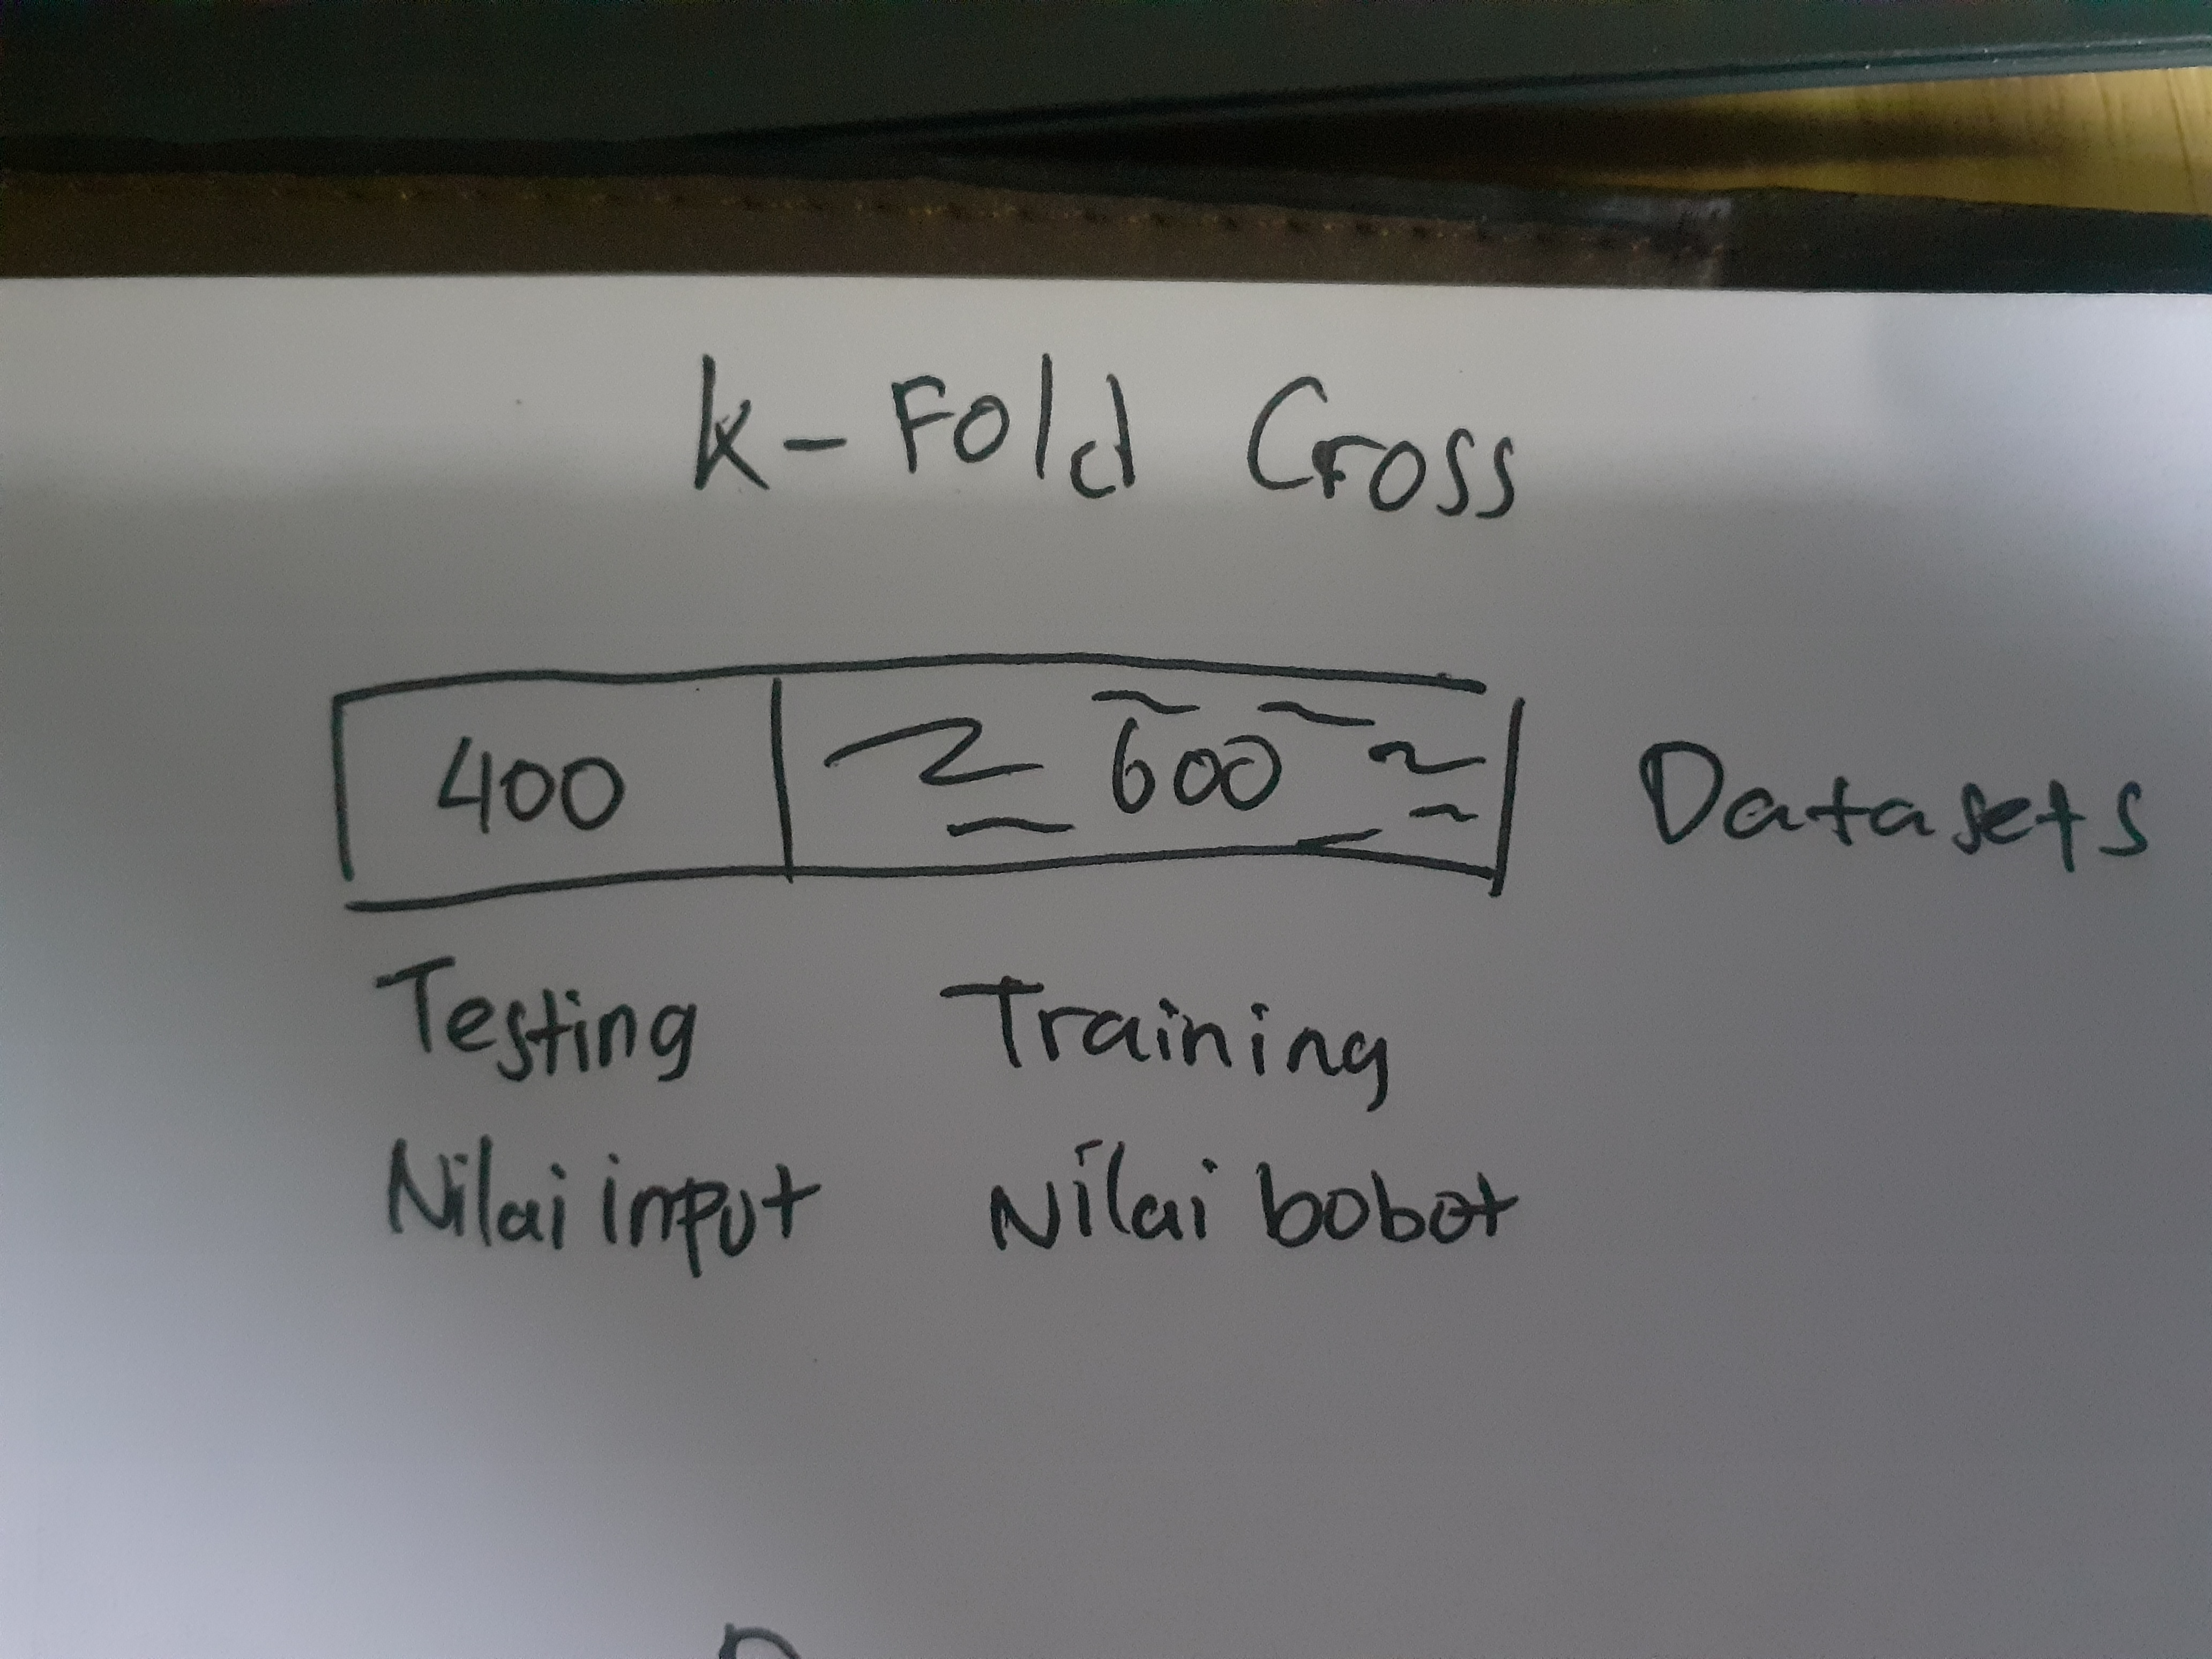 K-Fold Cross
400 600 Datasets
Testing Training
Nilai input Nilai bobot